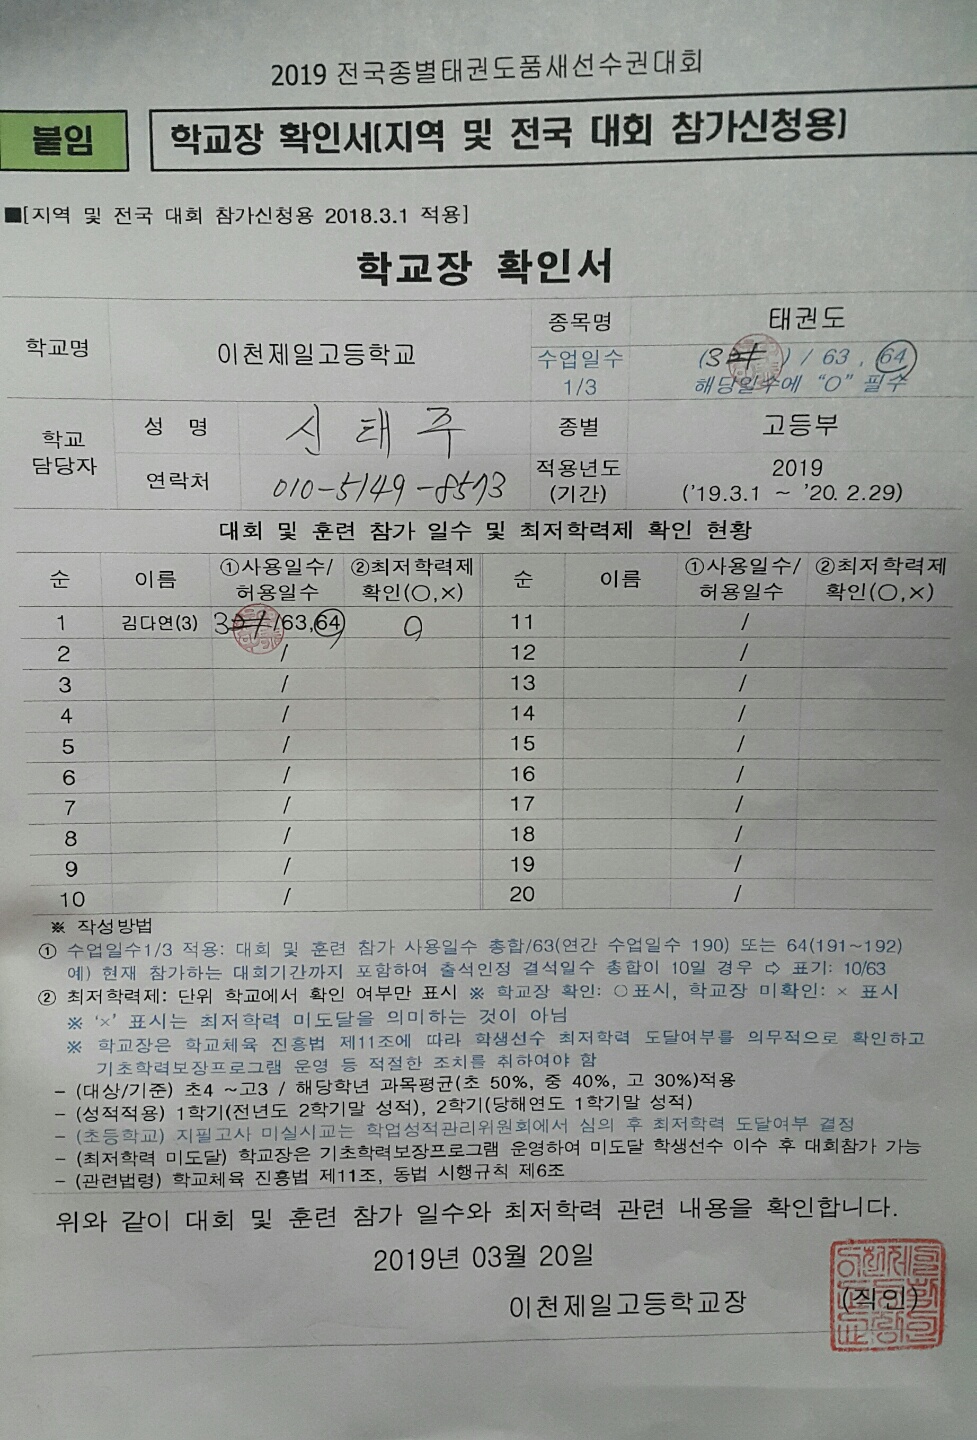 2019 전국종별태권도품새선수권대회
붙임
학교장 확인서[지역 및 전국 대회 참가신청용]
■[지역 및 전국 대회 참가신청용 2018.3.1 적용]
학교장 확인서
학교명 이천제일고등학교 종목명 태권도
수업일수 1/3 (3 ) / 63 , 64
해당일수에 “O” 필수
학교 담당자 성 명 신태주 종별 고등부
연락처 010-5149-8573 적용년도 (기간) 2019 ('19.3.1 ~ '20. 2.29)
대회 및 훈련 참가 일수 및 최저학력제 확인 현황
순 이름 ①사용일수/허용일수 ②최저학력제 확인(○,×) 순 이름 ①사용일수/허용일수 ②최저학력제 확인(○,×)
1 김다연(3) 3 /63,64 O 11 /
2 / 12 /
3 / 13 /
4 / 14 /
5 / 15 /
6 / 16 /
7 / 17 /
8 / 18 /
9 / 19 /
10 / 20 /
※ 작성방법
① 수업일수1/3 적용: 대회 및 훈련 참가 사용일수 총합/63(연간 수업일수 190) 또는 64(191~192)
예) 현재 참가하는 대회기간까지 포함하여 출석인정 결석일수 총합이 10일 경우 ⇨ 표기: 10/63
② 최저학력제: 단위 학교에서 확인 여부만 표시 ※ 학교장 확인: ○표시, 학교장 미확인: × 표시
※ ‘×’ 표시는 최저학력 미도달을 의미하는 것이 아님
※ 학교장은 학교체육 진흥법 제11조에 따라 학생선수 최저학력 도달여부를 의무적으로 확인하고
기초학력보장프로그램 운영 등 적절한 조치를 취하여야 함
- (대상/기준) 초4 ~고3 / 해당학년 과목평균(초 50%, 중 40%, 고 30%)적용
- (성적적용) 1학기(전년도 2학기말 성적), 2학기(당해연도 1학기말 성적)
- (초등학교) 지필고사 미실시교는 학업성적관리위원회에서 심의 후 최저학력 도달여부 결정
- (최저학력 미도달) 학교장은 기초학력보장프로그램 운영하여 미도달 학생선수 이수 후 대회참가 가능
- (관련법령) 학교체육 진흥법 제11조, 동법 시행규칙 제6조
위와 같이 대회 및 훈련 참가 일수와 최저학력 관련 내용을 확인합니다.
2019년 03월 20일
이천제일고등학교장 (직인)